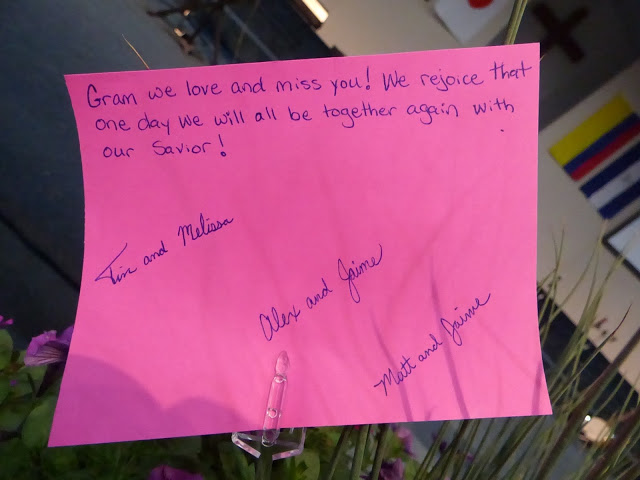 Gram we love and miss you! We rejoice that
one day we will all be together again with
our Savior!
Tim and Melissa
Alex and Jaime
Matt and Jaime